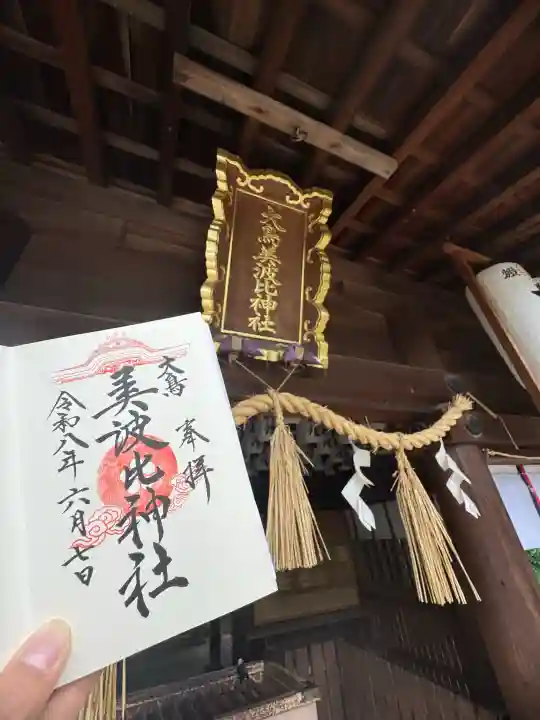 大鳥美波比神社
奉拝
大鳥
美波比神社
令和八年六月七日